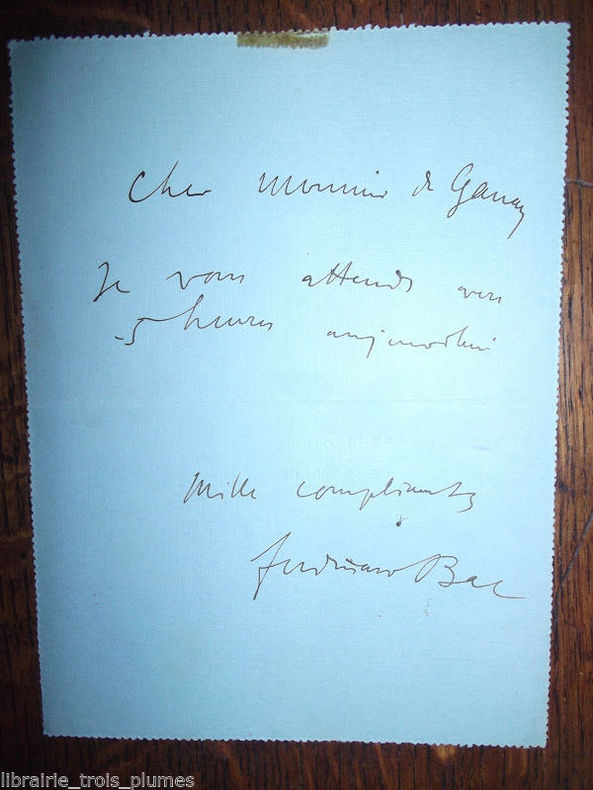 Cher Monsieur de Ganay
Je vous attends vers
5 heures aujourd'hui
Mille compliments
Ferdinand Bac
librairie_trois_plumes